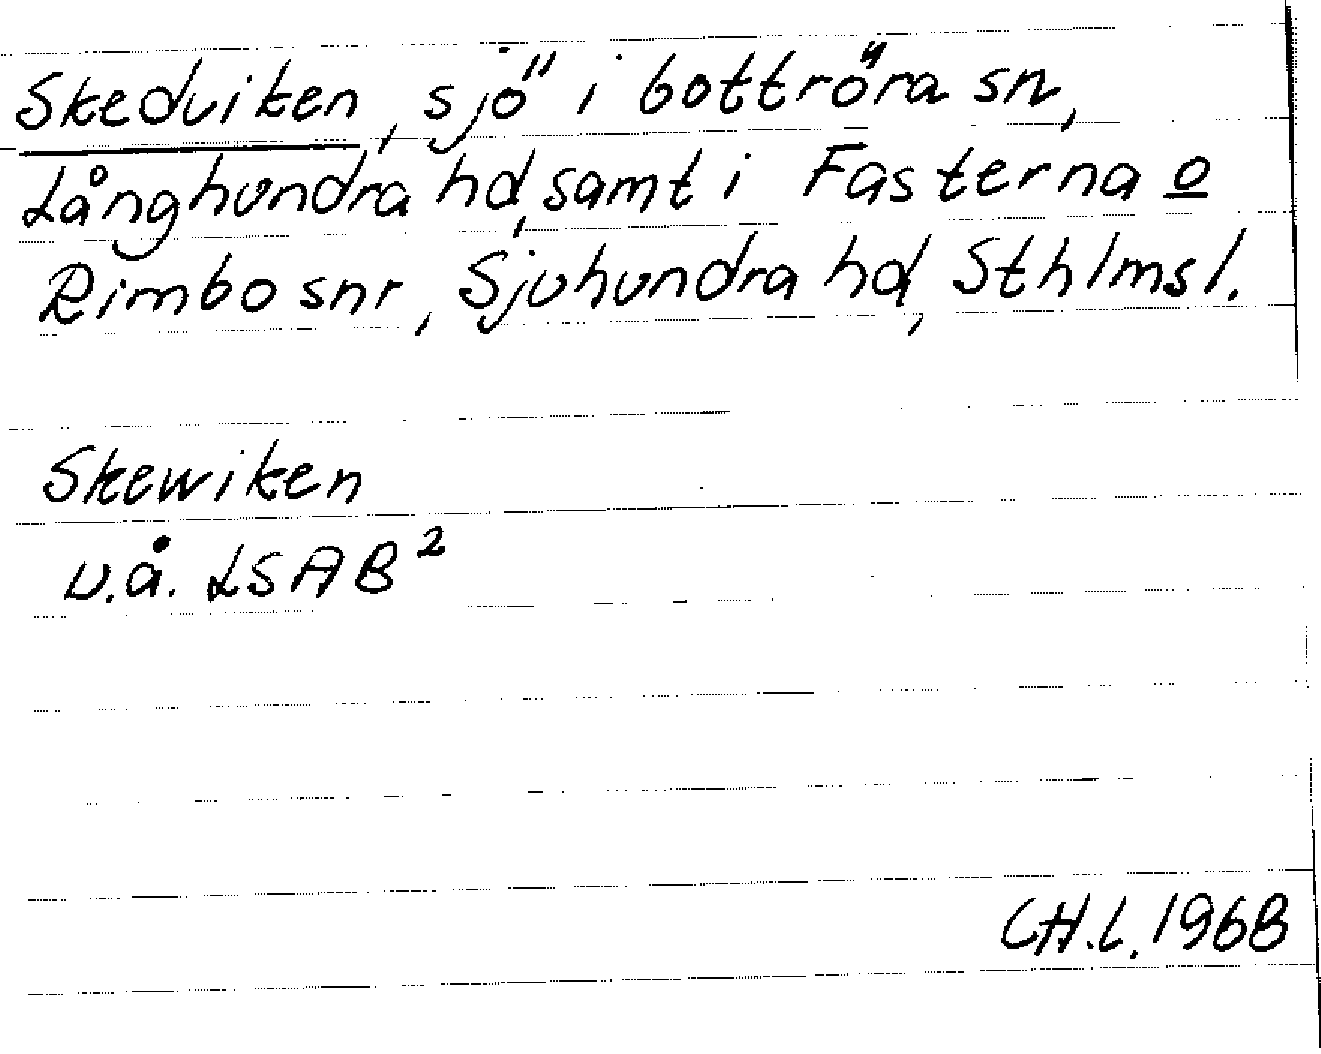 Skedviken, sjö i Gottröra sn,
Långhundra hd, samt i Fasterna o
Rimbo snr, Sjuhundra hd, Sthlms l.
Skewiken
u.å. LSA B²
CH.L. 1968